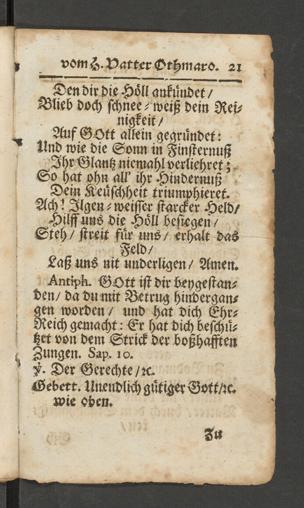 vom H. Vatter Othmaro. 21
Den dir die Höll ankündet/
Blieb doch schnee-weiß dein Rei-
nigkeit/
Auf GOtt allein gegründet:
Und wie die Sonn in Finsternuß
Ihr Glantz niemahl verliehret;
So hat ohn all' ihr Hindernuß
Dein Keüschheit triumphieret.
Ach! Ilgen-weisser starcker Held/
Hilff uns die Höll besiegen/
Steh/ streit für uns/ erhalt das
Feld/
Laß uns nit underligen/ Amen.
Antiph. GOtt ist dir beygestan-
den/ da du mit Betrug hindergan-
gen worden/ und hat dich Ehr-
Reich gemacht: Er hat dich beschü-
tzet von dem Strick der boßhafften
Zungen. Sap. 10.
℣. Der Gerechte/ꝛc.
Gebett. Unendlich gütiger Gott/ꝛc.
wie oben.
Zu